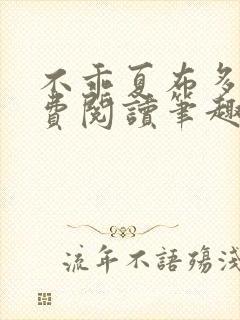 不乖夏布多
費閱讀筆趣
流年不語殤淺